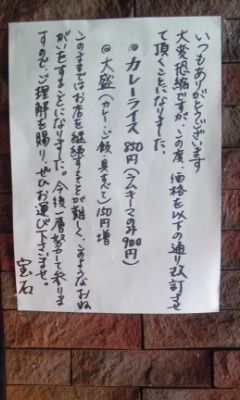 いつもありがとうございます
大変恐縮ですが、この度、価格を以下の通り改訂させ
て頂くことになりました。
◎カレーライス 850円(ラムキーマのみ900円)
◎大盛(カレー、ご飯、具すべて)150円増
このままではお店を継続することが難しく、このようなおね
がいをすることになりました。今後一層努力して参りま
すので、ご理解を賜り、ぜひお運び下さいませ。
宝石